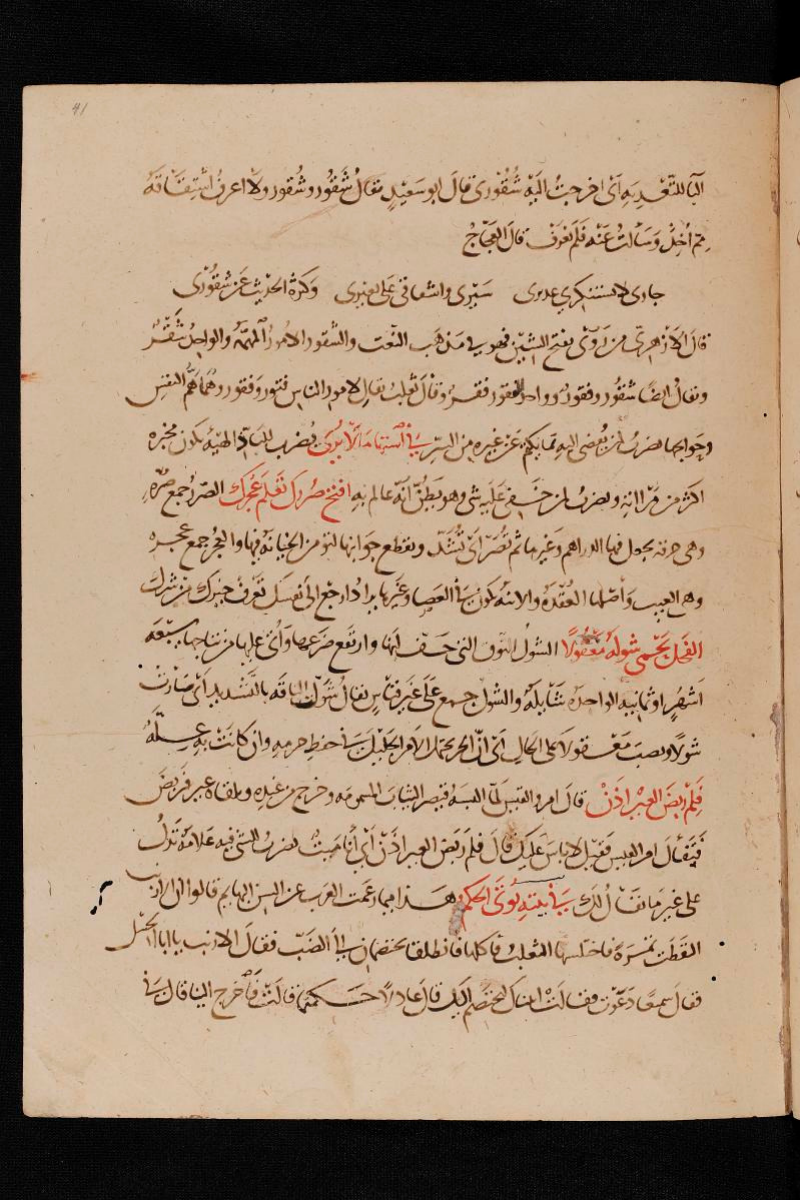 41
الباء للتعدية اى اخرجتُ اليه شُقُورى قال ابو سَعِيْدٍ يقالُ شَقُور وشُقور ولا اعرف اشتقاقه
مِمّ أُخِذَ وسَألتُ عَنْه فلم يُعرَف قال العجّاجُ
جارى لا تستنكرى عذيرى سَيْرى واشفاقى على بعيرى وكثرة الحديث عن شقورى
قال الازهرى من رَوَى بفتح الشين فهو فى مَذهَب النّعت والشقور الامورُ المهمّة والواحد شَقْرٌ
ويقال ايضًا شقُور وفقورٌ وواحد الفقور فقرٌ وقال ثعلبٌ يقال لامور الناس فقور وفقور وهما هَمُّ النفس
وحَوايجها يضربُ لمن يُفضى اليه بما يكتم عن غيره من السِّر فى استها مَا لا يُرى يُضرب للباذل الهيئة يكون مخبره
اكثر من مرآتهِ ويضربُ لمن خَفى عليه شى وهو يظنّ انه عالم به افتح صُرَرَكَ تَعْلَم عُجَرَكَ الصّررُ جمع صُرّة
وهى خرقة يجعل فيها الدراهم وغيرها ثم تُصَرُّ اى تُشَدّ ويقطع جوانبها لتؤمن الخيانة فيها والعُجرُ جمع عُجره
وهى العيب واصلها العُقدَة والابنة تكون فى العصا وغيرها يراد ارجع الى نفسك تَعْرف خيرك من شرك
الفحل يَحْمى شَولَهُ مَعْقُولًا الشولُ النُّوق التى خَفّ لبنها وارتفع ضرعها واتى عليها من نتاجها سبعة
اَشهُرٍ او ثمانية الواحدة شَايلةٌ والشول جمع على غير قياسٍ يقال شَوّلَت الناقة بالتشديد اى صارت
شولًا ونصب معقولًا على الحال اى انّ الحر يحتمل الامر الجليل فى حفظ حرمه وان كانَتْ به عِلّةٌ
فَلِمَ رَبضَ العَيْرُ اِذَنْ قال امرو القيس لمّا البسهُ قيصر الثياب المسمومه وخرج من عنده وتلقاه عير فربَضَ
فتفآل امرو القيس فقيل لا بأس عليكَ قالَ فلِمَ رَبضَ العير اذَنْ اى اَنا مَيتٌ يضربُ للشى فيه علامة تدلُّ
على غير ما يقالُ لكَ فى بيته يُوتَى الحكَمُ وهذا مما زعمت العرب عن السن البهايم قالوا ان الارنب
التقطت تمْرَةً فاختلسها الثعلبُ فاكلها فانطلقا يختصمان الى الضَبّ فقال الارنب يا ابا الحسل
فقال سميعًا دَعَوْتِ فقالَتْ اتيناك لنختصم اليك قال عادلًا حكمتما قالَتْ فاخرج الينا قال فى